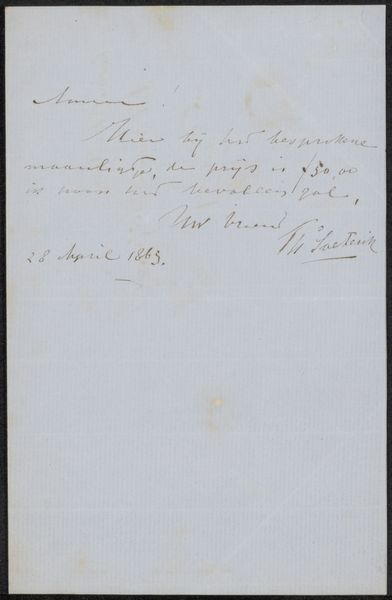 Amice!
Hier bij het besprokene
maanligtje, de prijs is ƒ50,00
ik hoop het bevallen zal,
Uw vriend
Th Soeterik
28 April 1863.